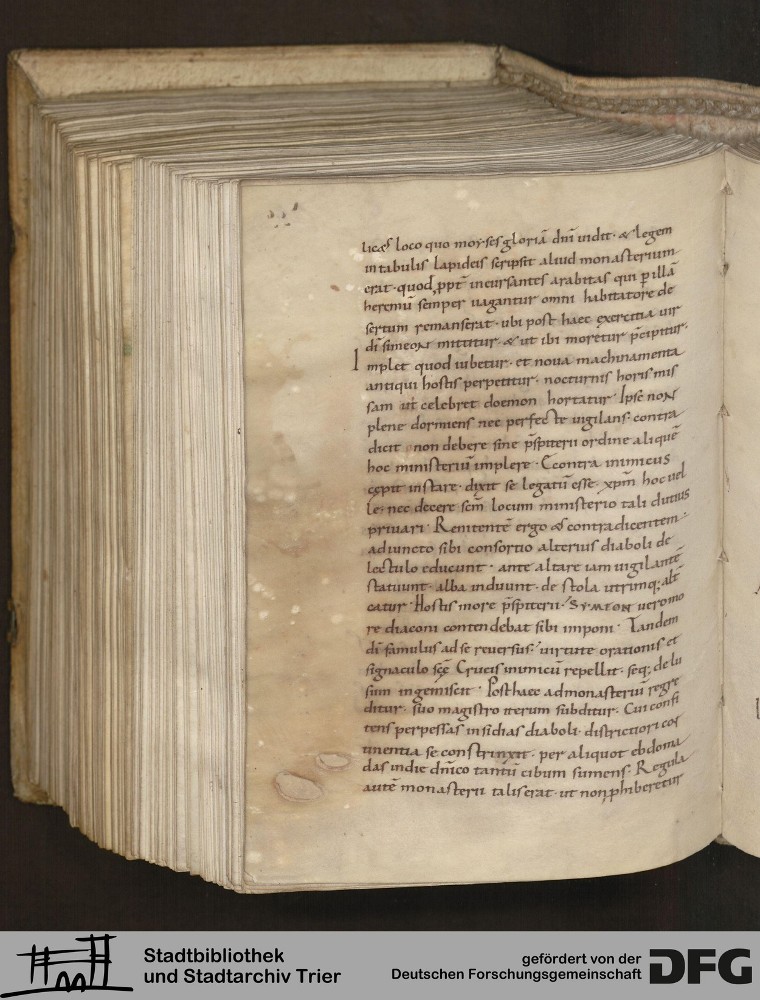 licet loco quo moyses gloriā dnī uidit · & legem
in tabulis lapideis scripsit aliud monasterium
erat · quod ꝓpt̄ incursantes arabitas qui ꝑ illā
heremū semper uagantur omni habitatore de
sertum remanserat · ubi post haec exercitia uir
dī simeon mittitur · & ut ibi moretur p̄cipitur ·
Implet quod iubetur · et noua machinamenta
antiqui hostis perpetitur · nocturnis horis mis
sam ut celebret doemon hortatur · Ipse non
plene dormiens nec perfecte uigilans · contra
dicit non debere sine p̄sbiterii ordine aliquē
hoc ministeriū implere · Econtra inimicus
cępit instare · dixit se legatū esse · xpm̄ hoc uel
le · nec decere scm̄ locum ministerio tali diutius
priuari · Renitentē ergo & contradicentem
adiuncto sibi consortio alterius diaboli de
lectulo educunt · ante altare iam uigilantē
statuunt · alba induunt · de stola utrimq; alt̄
catur · Hostis more p̄sbiterii · SYMEON uero mo
re diaconi contendebat sibi imponi · Tandem
dī famulus ad se reuersus · uirtute orationis et
signaculo scę̄ Crucis inimicū repellit · seq; delu
sum ingemiscit · Post haec ad monasteriū regre
ditur · suo magistro iterum subditur · Cui confi
tens perpessas insidias diaboli · districtiori con
tinentia se constrinxit · per aliquot ebdoma
das in die dn̄ico tantū cibum sumens · Regula
autē monasterii talis erat · ut non ꝓhiberetur
Stadtbibliothek
und Stadtarchiv Trier
gefördert von der
Deutschen Forschungsgemeinschaft
DFG